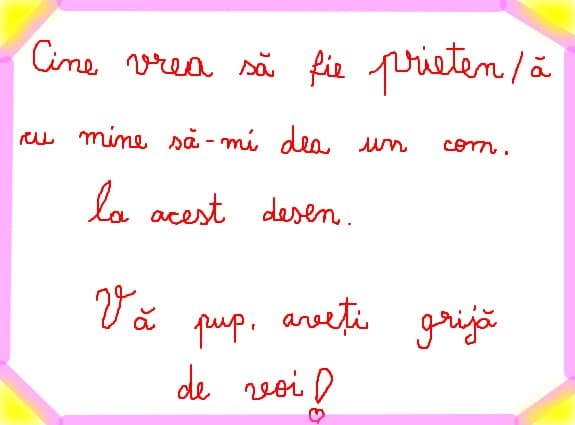 Cine vrea să fie prieten/ă
cu mine să-mi dea un com.
la acest desen.
Vă pup, aveți grijă
de voi!